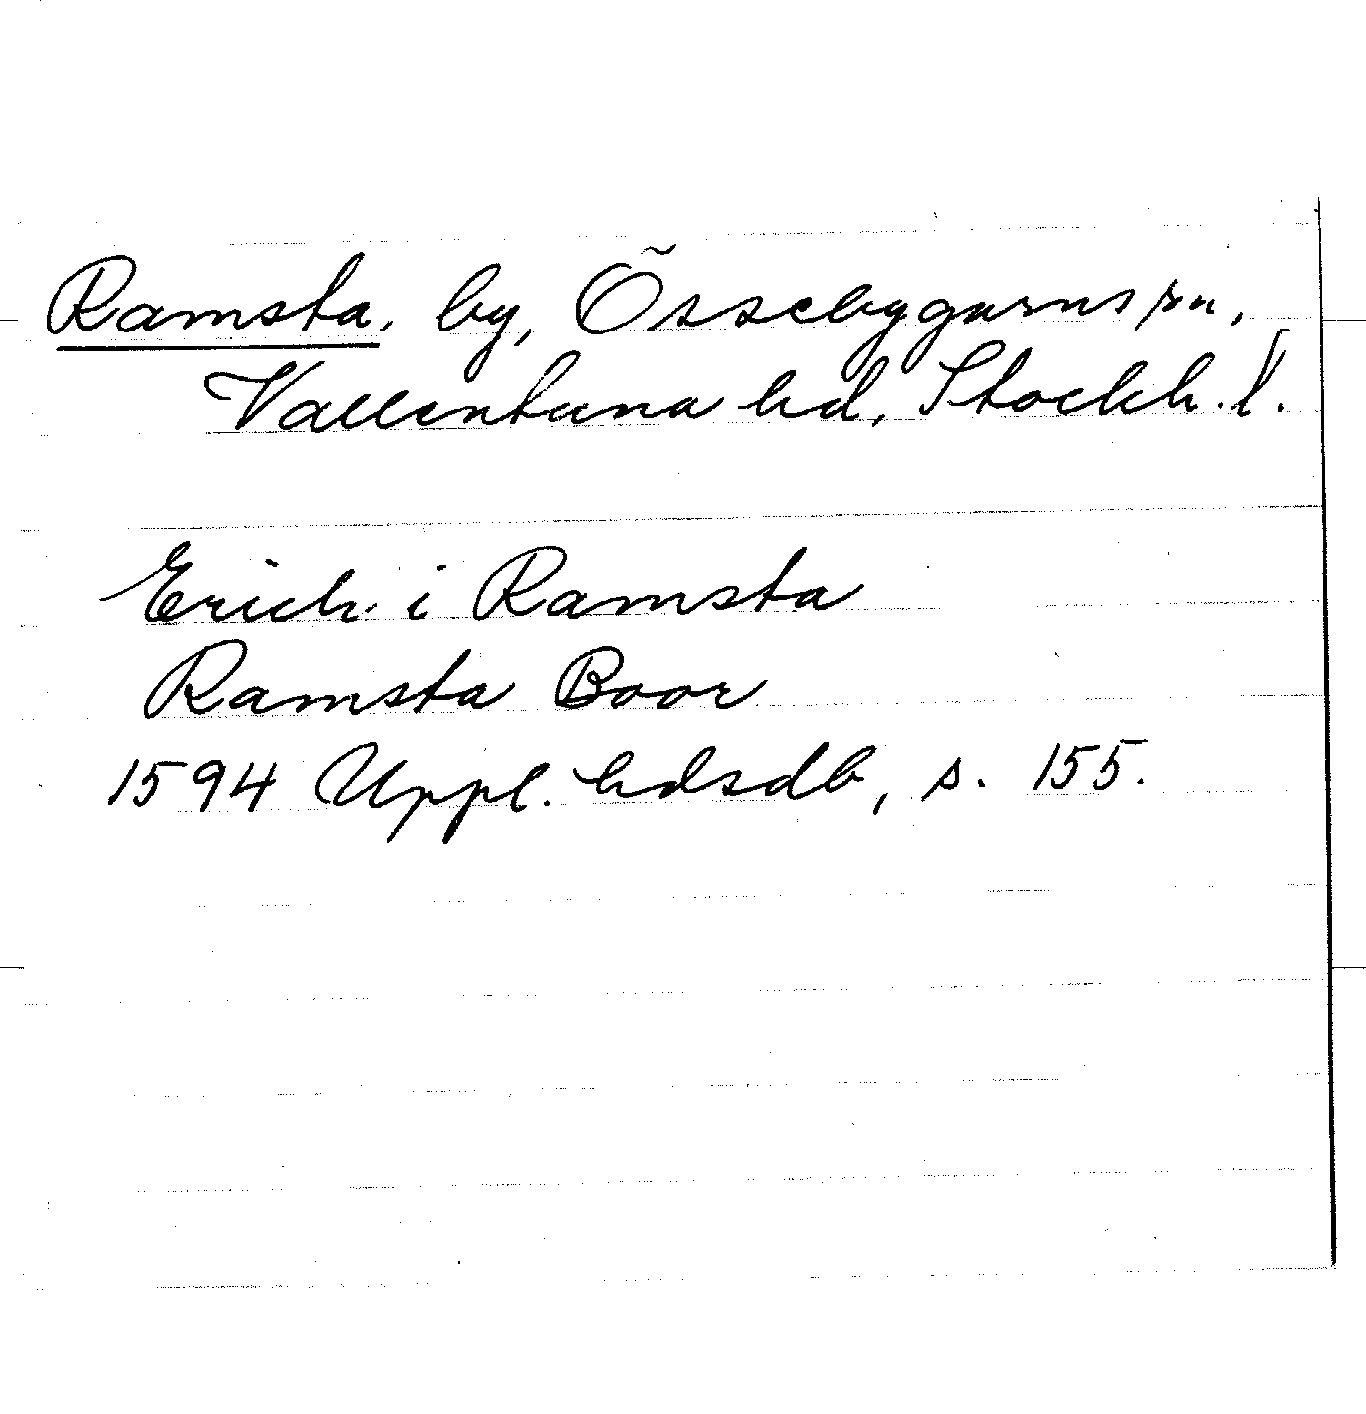 Ramsta, by, Össebygarns sn,
Vallentuna hd, Stockh. l.
Erich i Ramsta
Ramsta Boor
1594 Uppl. hdsdb, s. 155.